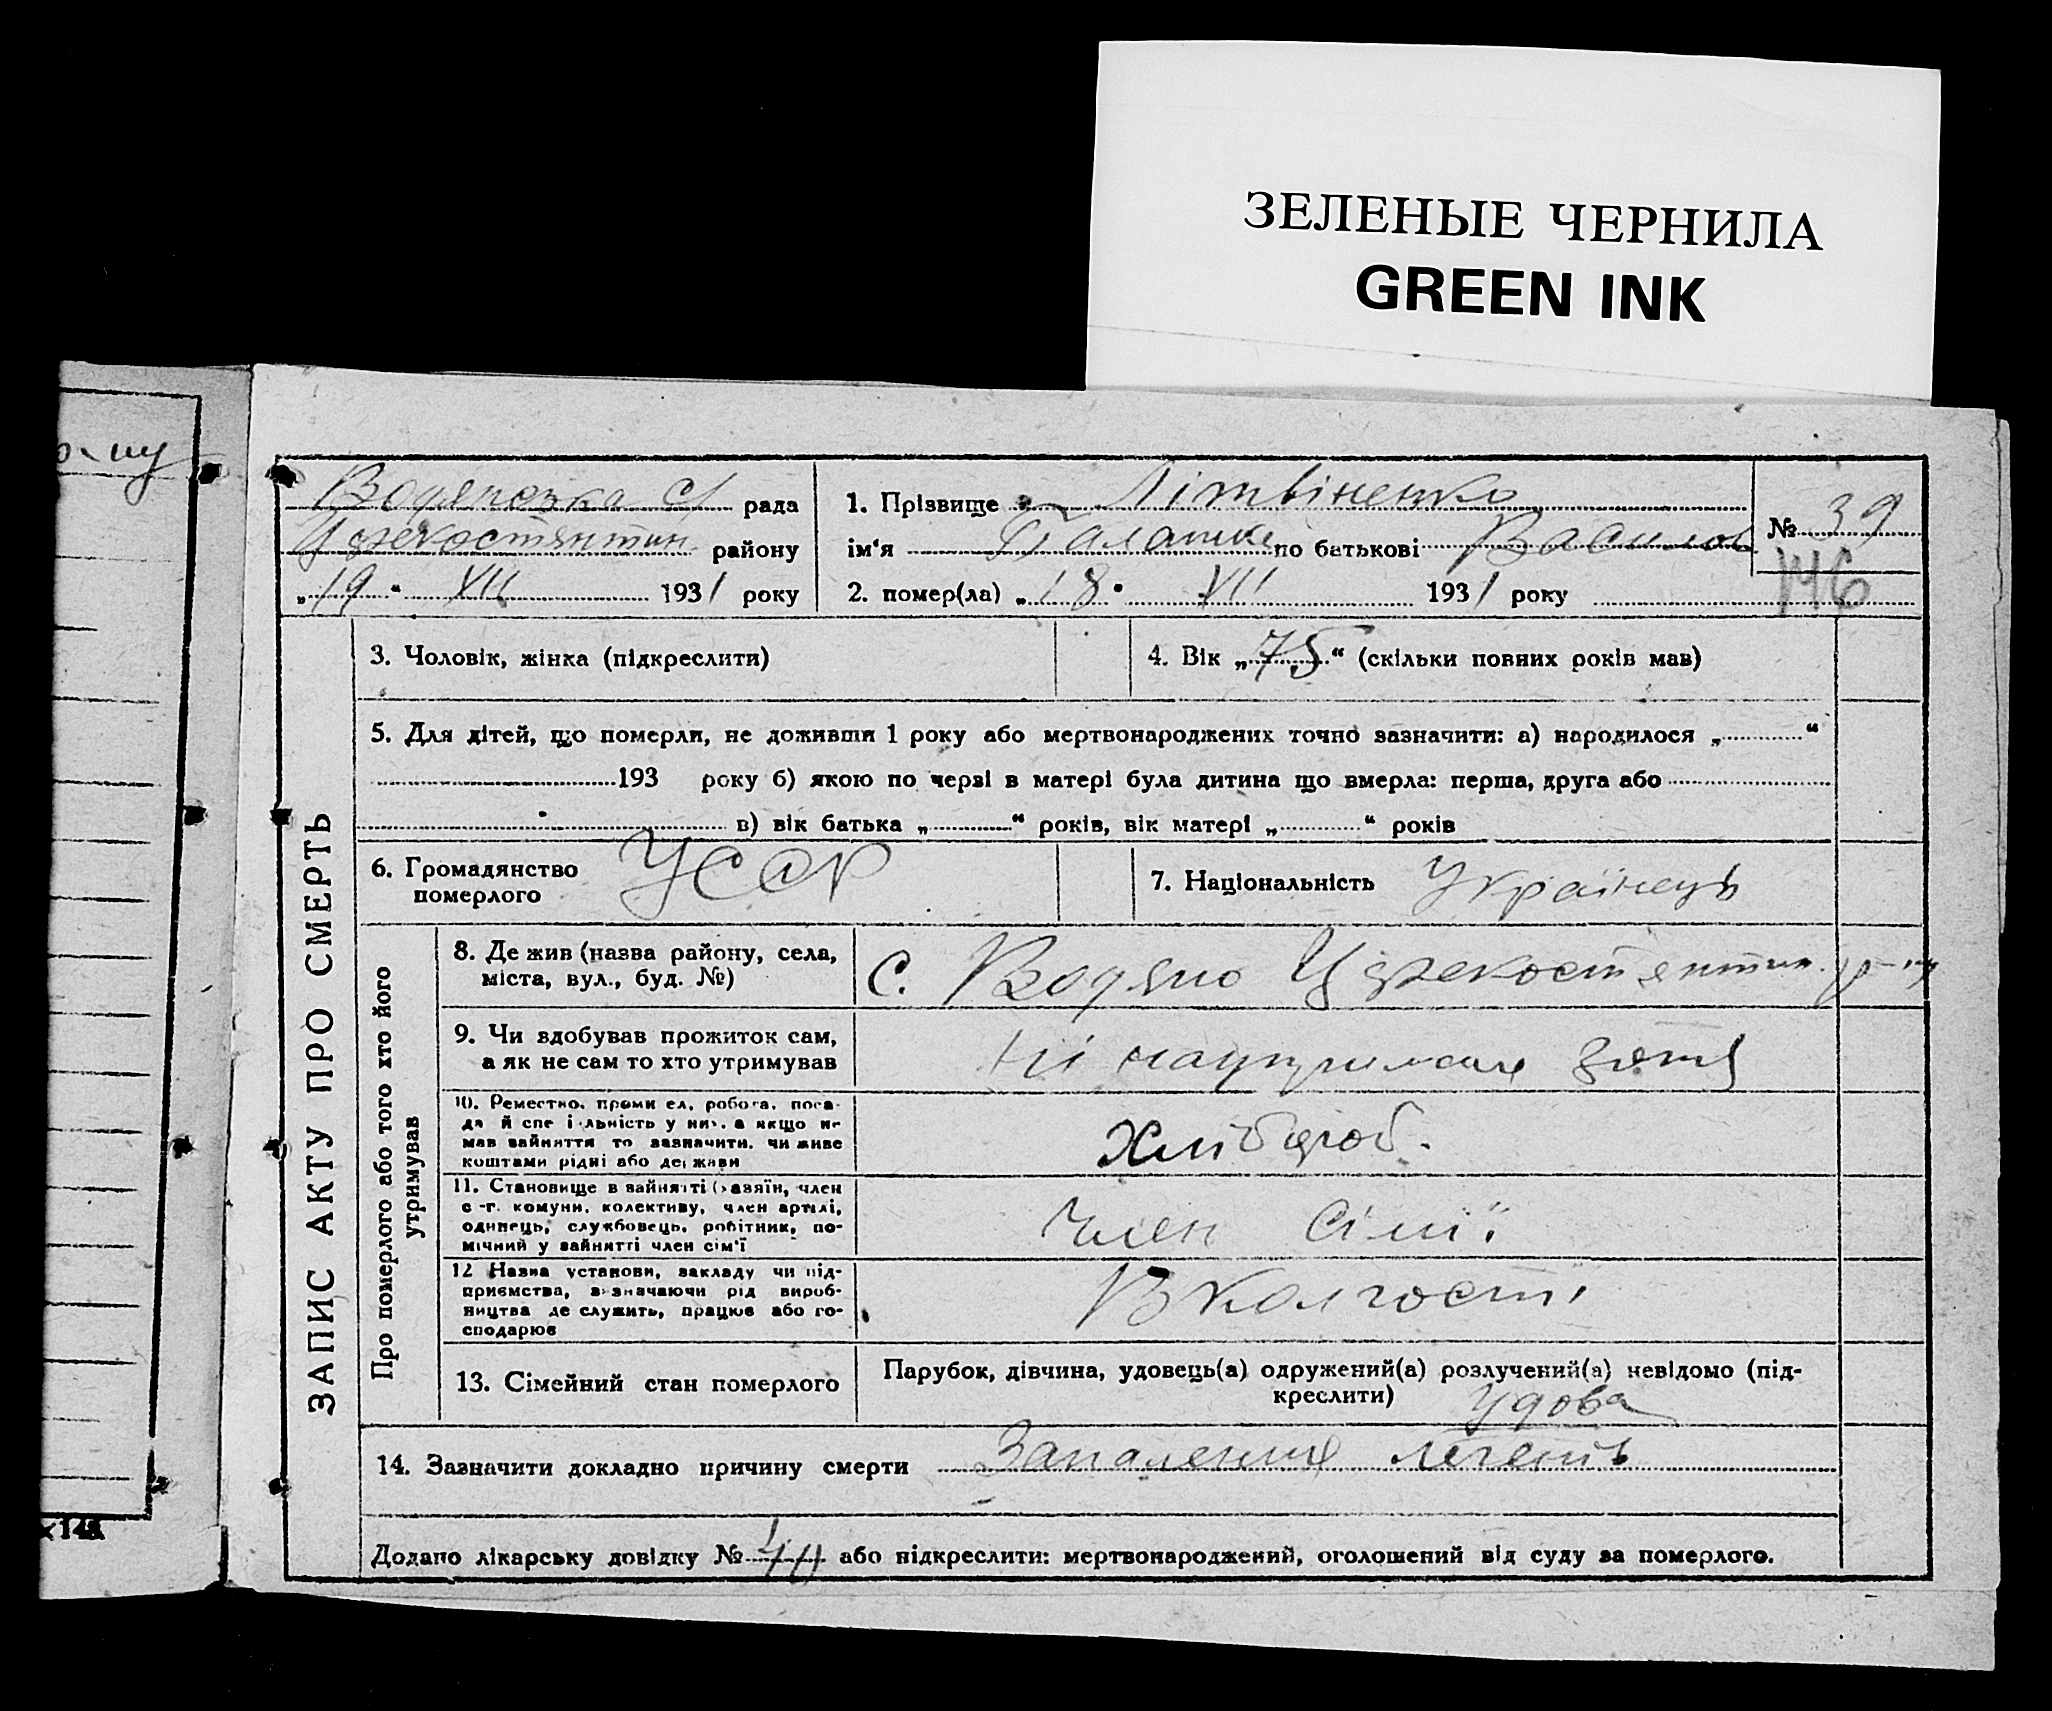 ЗЕЛЕНЫЕ ЧЕРНИЛА
GREEN INK
Водяновка с/ рада
району
„19“ VII 1931 року
1. Прізвище Літвіненко
ім‘я по батькові Васил
2. помер(ла) „18“ VII 1931 року
№ 39
146
ЗАПИС АКТУ ПРО СМЕРТЬ
3. Чоловік, жінка (підкреслити)
4. Вік „75“ (скільки повних років мав)
5. Для дітей, що померли, не доживши 1 року або мертвонароджених точно зазначити: а) народилося „ “
193 року б) якою по черзі в матері була дитина що вмерла: перша, друга або
в) вік батька „ “ років, вік матері „ “ років
6. Громадянство
померлого
УССР
7. Національність Українець
Про померлого або того хто його
утримував
8. Де жив (назва району, села,
міста, вул., буд. №)
с. Водяно
9. Чи здобував прожиток сам,
а як не сам то хто утримував
Ні зятя
10. Ремество, промисел, робота, поса-
да й спеціяльність у них, а якщо не
мав зайняття то зазначити, чи живе
коштами рідні або держави
Хлібороб.
11. Становище в зайнятті (хазяїн, член
с-г. комуни, колективу, член артілі,
одинець, службовець, робітник, по-
мічний у зайнятті член сім‘ї
Член сімї
12 Назва установи, закладу чи під-
приємства, зазначаючи рід вироб-
ництва де служить, працює або го-
сподарює
В колгоспі
13. Сімейний стан померлого
Парубок, дівчина, удовець(а) одружений(а) розлучений(а) невідомо (під-
креслити)
Удова
14. Зазначити докладно причину смерти Запалення легень
Додано лікарську довідку № або підкреслити: мертвонароджений, оголошений від суду за померлого.